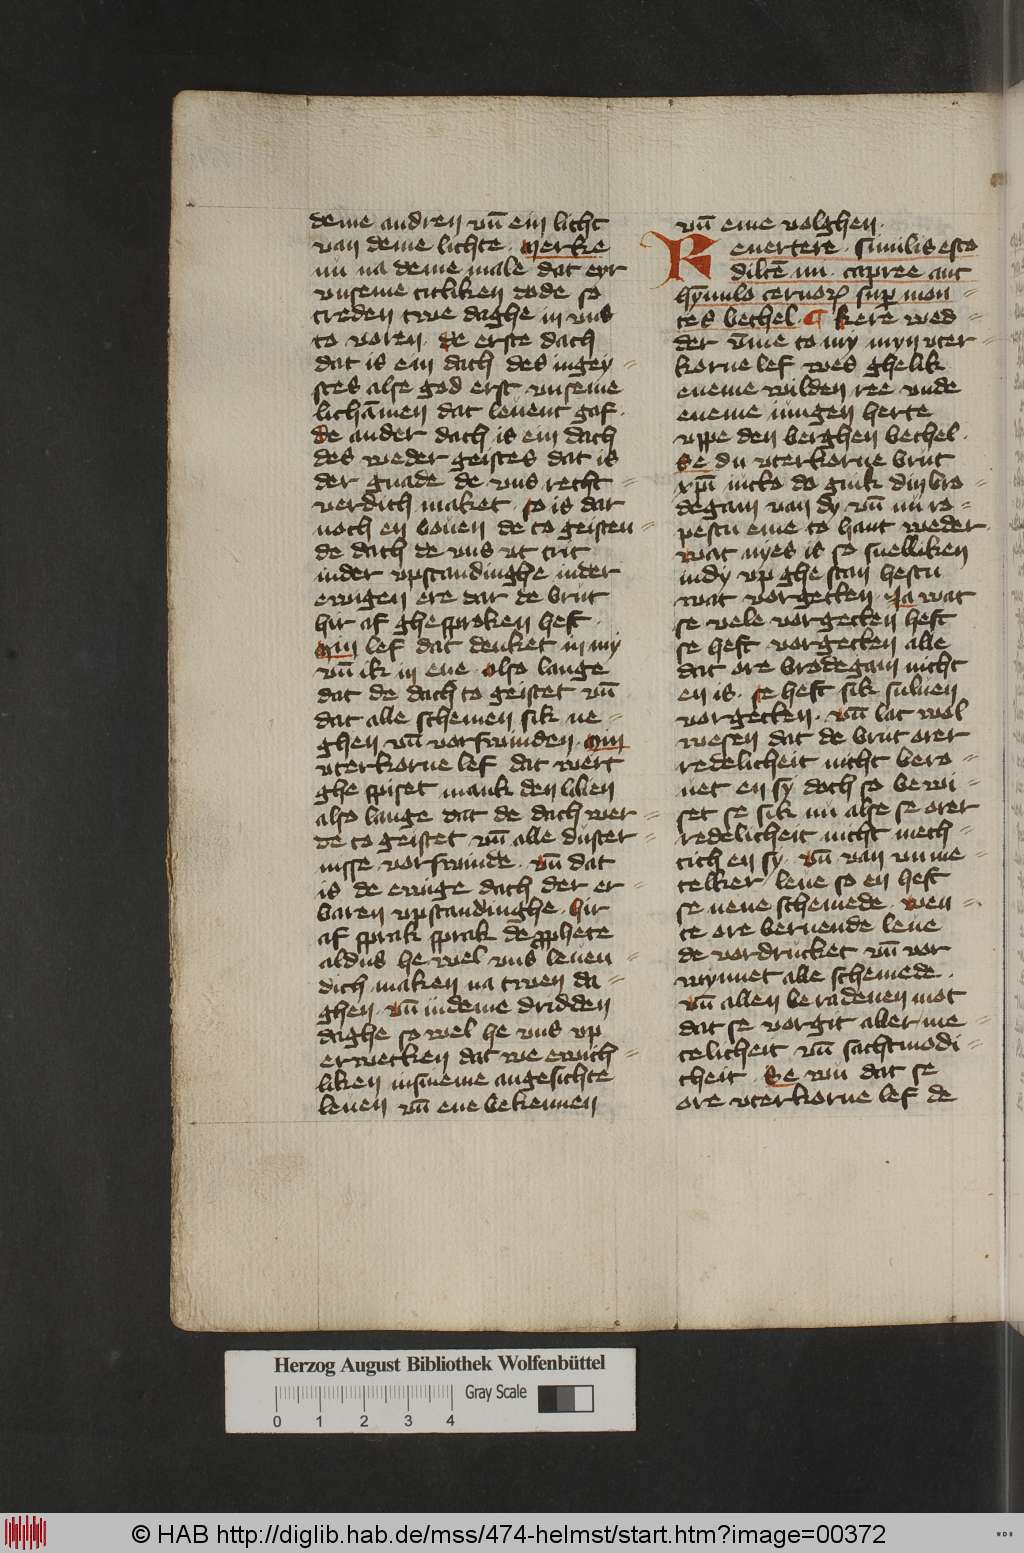 deme andren vn̄ ein licht
van deme lichte · Merke
nu na deme male dat err
vnseme titliken dode so
treden twe daghe in vns
to voren · de erste dach
dat is ein dach des ingey
stes alse god erst vnseme
lichāmen dat leuent gaf ·
de ander dach is ein dach
des weder geistes dat is
der gnade de vns recht
verdich maket · so is dar
noch en bouen de to geisten
de dach de vns vt trit
inder vpstandinghe inder
ewigen ere dar de brut
hir af ghesproken heft ·
Min lef dat denket in my
vn̄ ik in eme · also lange
dat de dach to geistet vn̄
dat alle schemen sik ne
ghen vn̄ vorswinden · Min
vterkorne lef dat wert
ghe spiset mank den lilien
also lange dat de dach wer
de to geistet vn̄ alle duster
nisse vorswinde · vn̄ dat
is de ewige dach der er
baren vpstandinghe · hir
af sprak sprak de pphete
aldus he wel vns leuen
dich maken na twen da
ghen · vn̄ indeme dridden
daghe so wel he vns vp
erwecken dat we ewich
liken insineme angesichte
leuen vn̄ ene bekennen
vn̄ eme volghen ·
Reuertere · similis esto
dilcē mi · capree aut
hȳnulo ceruoꝝ sup mon
tes bethel · ¶ Kere wed
der vm̄e to my myn vter
korne lef wes ghelik
eneme wilden ree vnde
eneme iungen herte
vppe den berghen bethel ·
Se du vterkorne brut
xpi nicto do gink din bro
degam van dy · vn̄ nu ro
pestu eme to hant weder
wat nyes is so snelliken
indy vp ghe stan hestu
wat vorgetken · Ja wat
se vele vorgetken heft
se heft vorgetken alle
dat ore brodegam nicht
en is · se heft sik suluen
vorgetken · vn̄ lat wol
wesen dat de brut orer
redelicheit nicht bero
uet en sy doch so bewi
set se sik nu alse se orer
redelicheit nicht mech
tich en sy · vn̄ van vnme
telker leue so en heft
se nene schemede · wen
te ore bernende leue
de vordrucket vn̄ vor
wynnet alle schemede ·
vn̄ allen beradenen mot
dat se vorgit aller me
telicheit vn̄ sachtmodi
cheit · Se wu dat se
ore vterkorne lef de
Herzog August Bibliothek Wolfenbüttel
Gray Scale
0 1 2 3 4
© HAB http://diglib.hab.de/mss/474-helmst/start.htm?image=00372